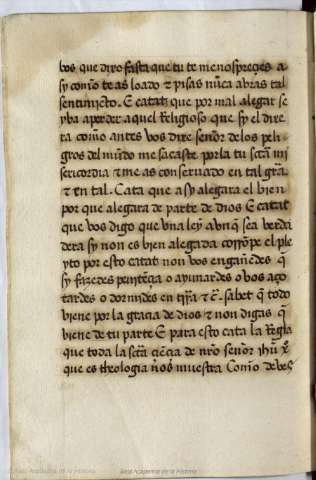 vos que dixo fasta que tu te menospreçies a
sy com̃o te as loado & pisas nũca abras tal
sentimiẽto. E catat que por mal alegar se
yba aperder aquel Religioso que sy el dixe
ra com̃o antes vos dixe señor delos peli
gros del mũdo me sacaste por la tu sctã mi
sericordia & me as conseruado en tal gra
& en tal. Cata que asy alegara el bien
por que alegara de parte de dios E catat
que vos digo que vna ley avnq̃ sea verda
dera sy non es bien alegada corrõpe el ple
yto por esto catat non vos engañedes q̃
sy fazedes penitẽçia o ayunardes o vos aço
tardes o dormides en tr̃ra & c̃. sabet q̃ todo
viene por la gracia de dios & non digas q̃
viene de tu parte E para esto cata la Regla
que toda la sctã ciẽcia de nr̃o señor ihũ x̃o
que es theologia nos muestra Com̃o deves
Real Academia de la Historia
Real Academia de la Historia